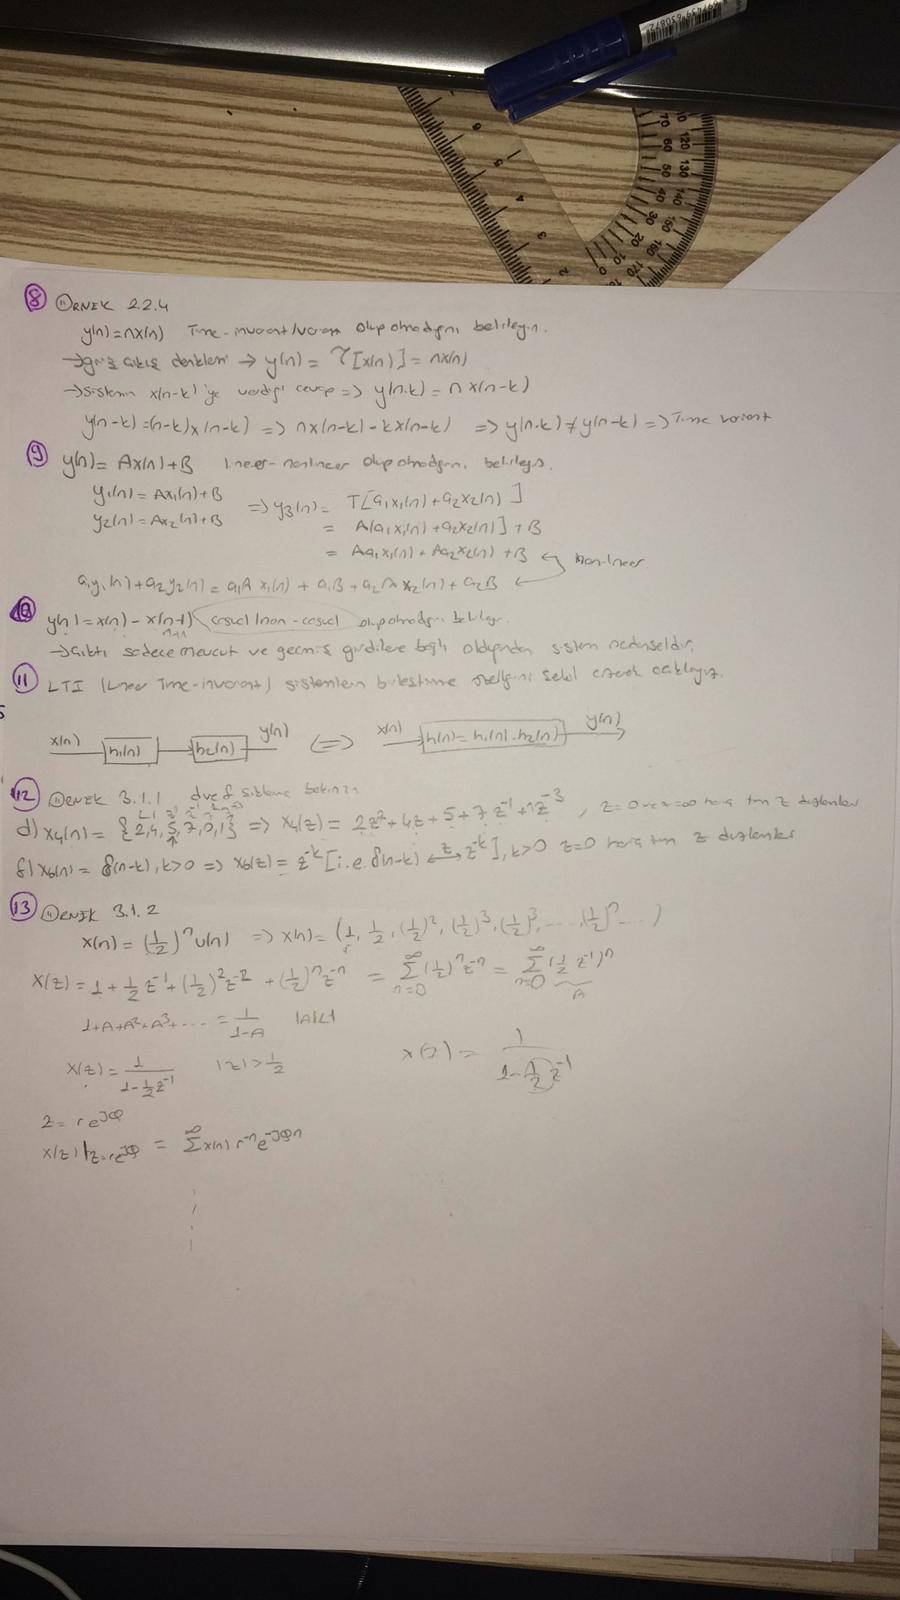 8 ÖRNEK 2.2.4
y(n)=nx(n) Time-invariant/variant olup olmadığını belirleyin.
→ giriş çıkış denklemi → y(n) = T[x(n)] = nx(n)
→ Sistemin x(n-k)'ye verdiği cevap => y(n,k) = n x(n-k)
y(n-k) = (n-k)x(n-k) => nx(n-k) - kx(n-k) => y(n,k) ≠ y(n-k) => Time variant
9 y(n) = Ax(n)+B lineer-nonlineer olup olmadığını belirleyin.
y₁(n) = Ax₁(n)+B
y₂(n) = Ax₂(n)+B => y₃(n) = T[a₁x₁(n) + a₂x₂(n)]
= A[a₁x₁(n) + a₂x₂(n)] + B
= Aa₁x₁(n) + Aa₂x₂(n) + B
Non-lineer
a₁y₁(n) + a₂y₂(n) = a₁A x₁(n) + a₁B + a₂A x₂(n) + a₂B
10 y(n) = x(n) - x(n-1) causal/non-causal olup olmadığını belirleyin.
→ Çıktı sadece mevcut ve geçmiş girdilere bağlı olduğundan sistem nedenseldir.
11 LTI (Linear Time-invariant) sistemlerin birleştirme özelliğini şekil çizerek açıklayınız.
x(n) h₁(n) h₂(n) y(n) <=> x(n) h(n) = h₁(n).h₂(n) y(n)
12 ÖRNEK 3.1.1 d ve f şıklarına bakınız
d) x₄(n) = {2,4,5,7,0,1} => X₄(z) = 2z² + 4z + 5 + 7z⁻¹ + 1z⁻³, z=0 ve z=∞ hariç tüm z düzlemler
f) x₆(n) = δ(n-k), k>0 => X₆(z) = z⁻ᵏ [i.e. δ(n-k) ↔ z⁻ᵏ], k>0 z=0 hariç tüm z düzlemler
13 ÖRNEK 3.1.2
x(n) = (1/2)ⁿ u(n) => x(n) = (1, 1/2, (1/2)², (1/2)³, (1/2)³, ..., (1/2)ⁿ ...)
X(z) = 1 + 1/2 z⁻¹ + (1/2)² z⁻² + (1/2)ⁿ z⁻ⁿ = ∑ₙ₌₀^∞ (1/2)ⁿ z⁻ⁿ = ∑ₙ₌₀^∞ (1/2 z⁻¹)ⁿ
A
1+A+A²+A³+... = 1/(1-A) |A|<1
X(z) = 1/(1-1/2 z⁻¹) |z| > 1/2 X(z) = 1/(1-1/2 z⁻¹)
z = re^jΘ
X(z)|z=re^jΘ = ∑^∞ x(n) r⁻ⁿ e^-jΘn